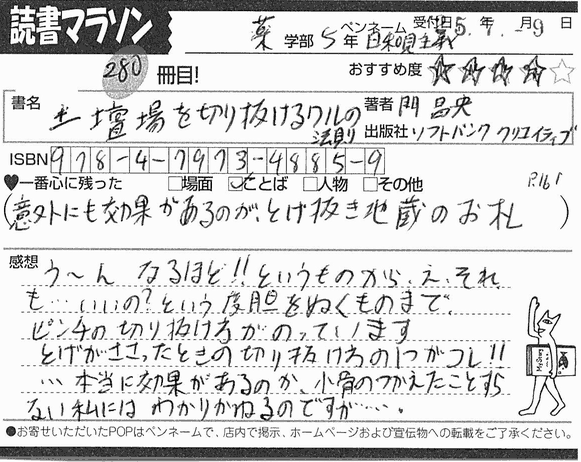 読書マラソン
薬 学部 5年 ペンネーム 自和唄主義 受付日 5. 年 1. 月 9 日
280 冊目! おすすめ度 ★★★★☆
書名 土壇場を切り抜けるワルの法則
著者 門 昌央
出版社 ソフトバンク クリエイティブ
ISBN 978-4-7973-4885-9
♥一番心に残った □場面 ☑ことば □人物 □その他 P.161
(意外にも効果があるのが、とげ抜き地蔵のお札)
感想 う〜ん なるほど!!というものから、え、それ
も…いいの?という度胆をぬくものまで、
ピンチの切り抜け方がのっています
とげがささったときの切り抜け方の1つがコレ!!
…本当に効果があるのか、小骨のつかえたことすら
ない私には わかりかねるのですが…。
●お寄せいただいたPOPはペンネームで、店内で掲示、ホームページおよび宣伝物への転載をご了承ください。